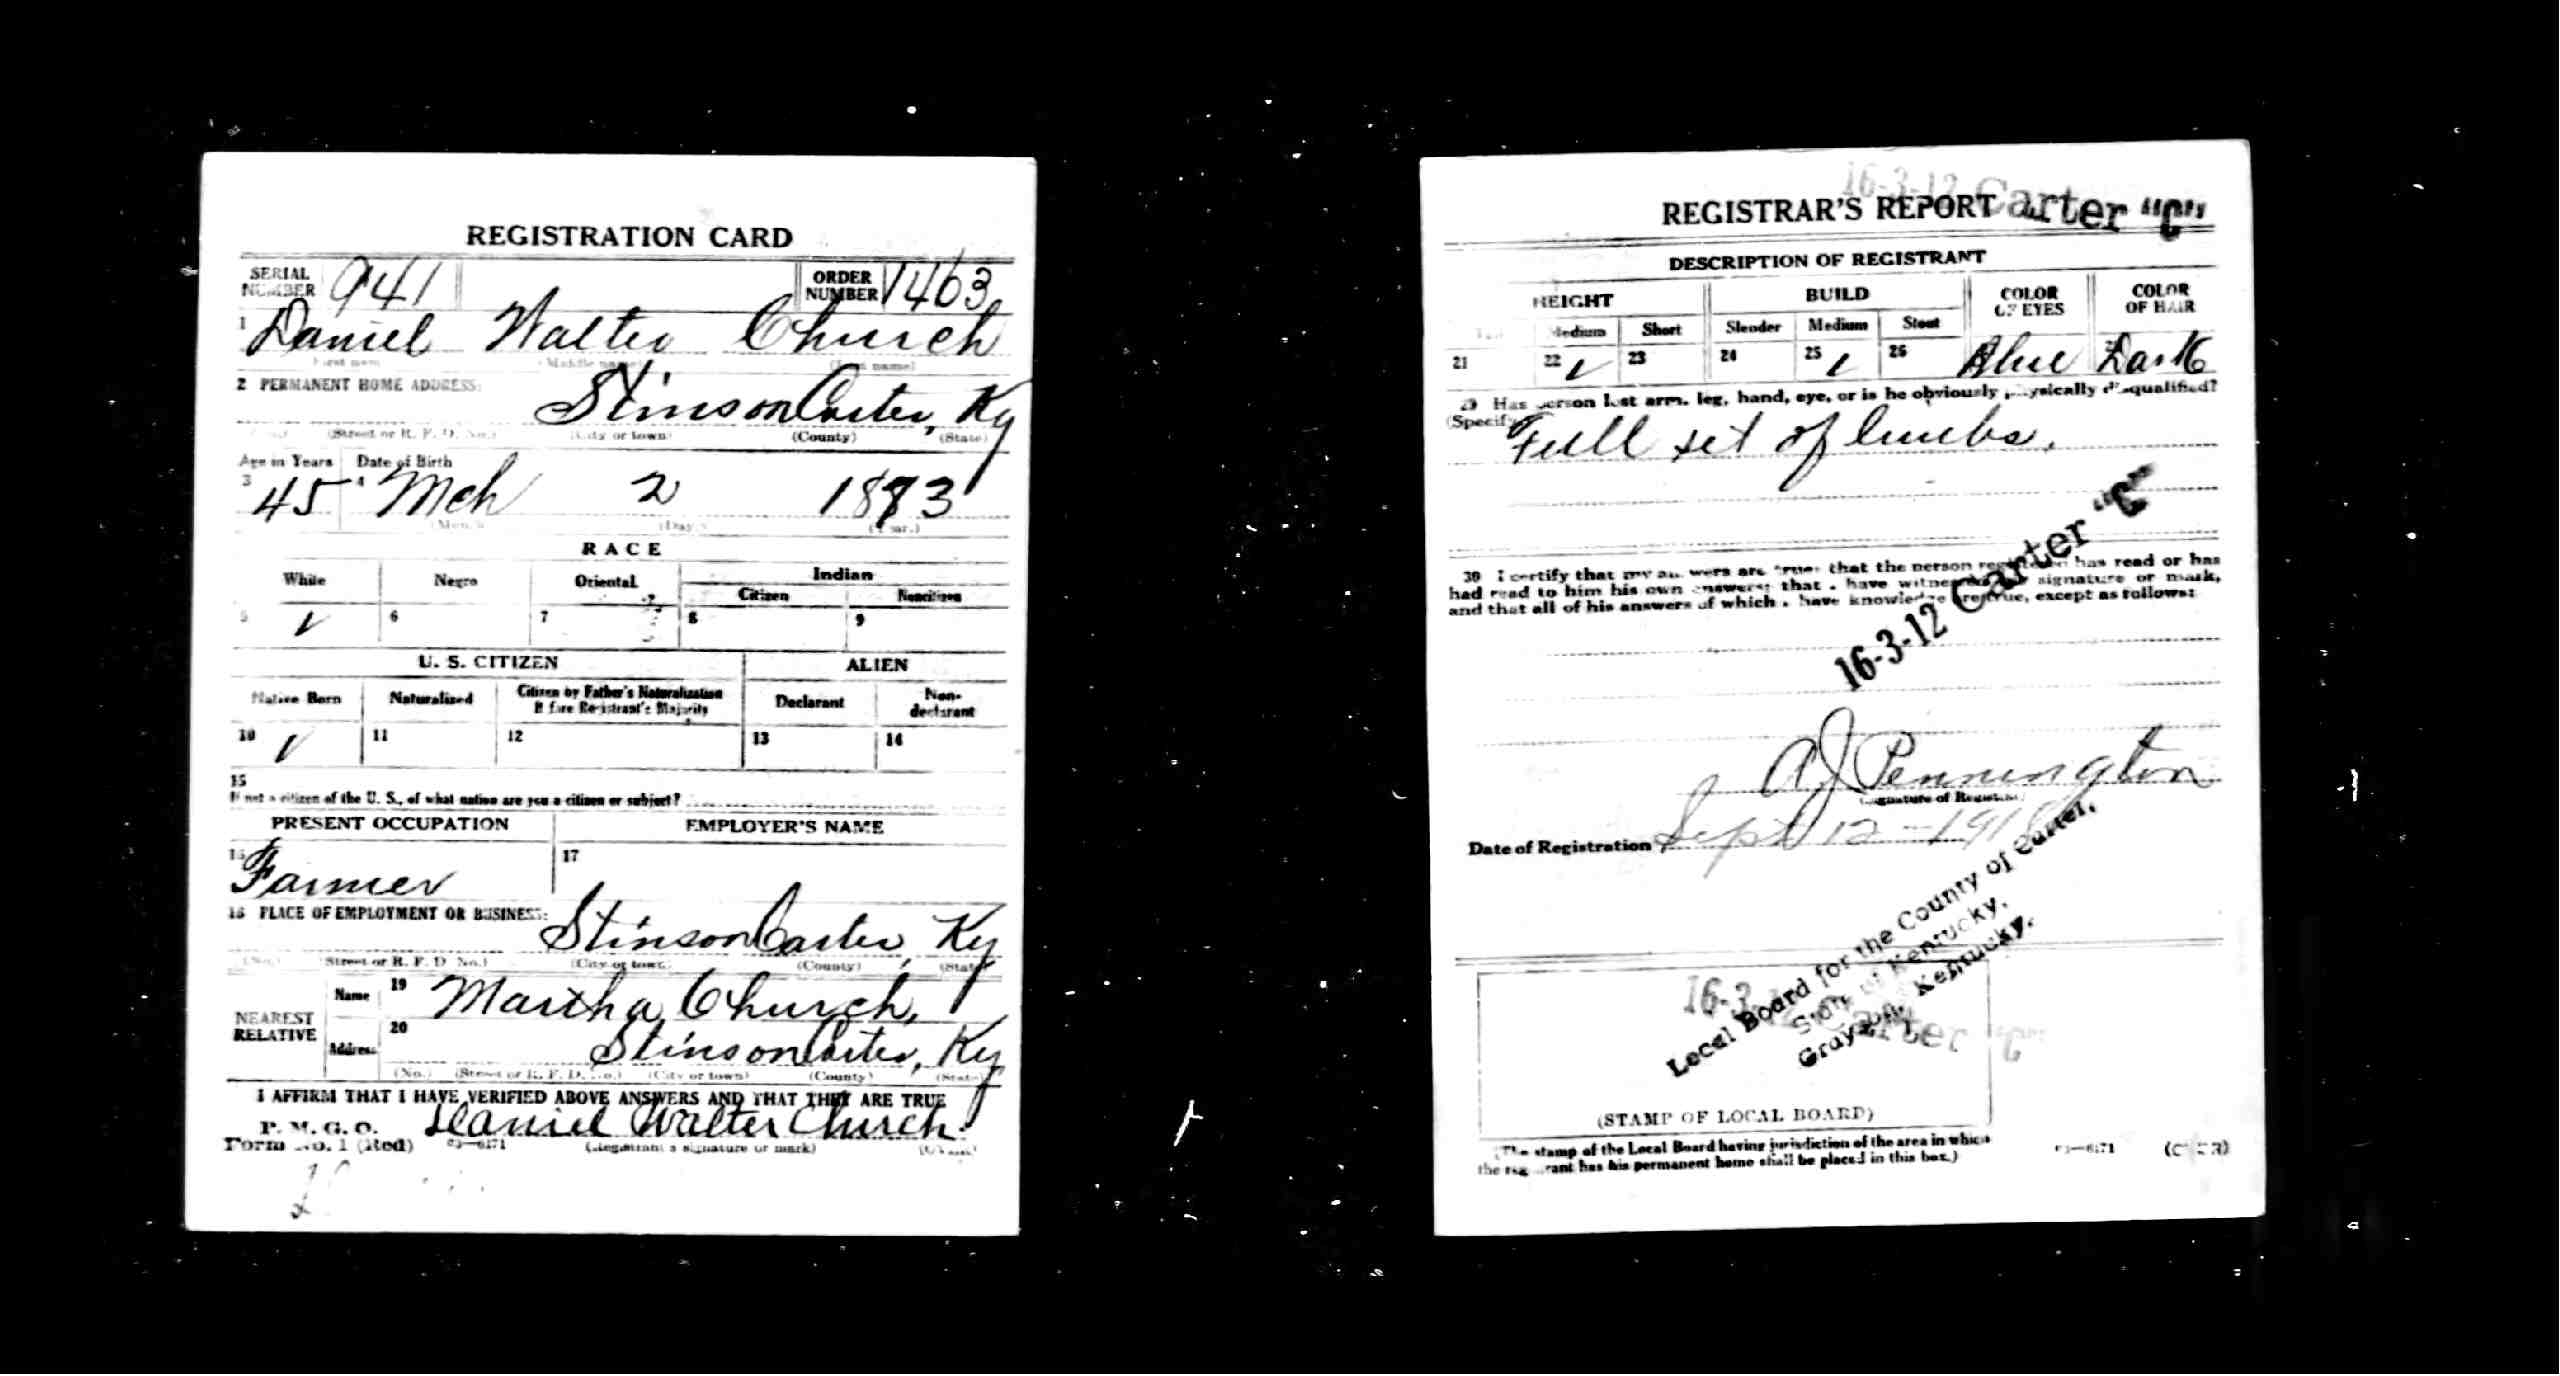 REGISTRATION CARD
SERIAL NUMBER 941 ORDER NUMBER 1463
1 Daniel Walter Church
First name (Middle name) (Last name)
2 PERMANENT HOME ADDRESS:
Stinson Carter, Ky
(Street or R. F. D. No.) (City or town) (County) (State)
Age in Years Date of Birth
3 45 4 Mch 2 1873
(Month) (Day) (Year.)
RACE
White Negro Oriental Indian
Citizen Noncitizen
5 ✓ 6 7 8 9
U. S. CITIZEN ALIEN
Native Born Naturalized Citizen by Father's Naturalization Before Registrant's Majority Declarant Non-declarant
10 ✓ 11 12 13 14
15
If not a citizen of the U. S., of what nation are you a citizen or subject?
PRESENT OCCUPATION EMPLOYER'S NAME
16 Farmer 17
18 PLACE OF EMPLOYMENT OR BUSINESS:
Stinson Carter, Ky
(No.) Street or R. F. D. No.) (City or town) (County) (State)
NEAREST RELATIVE
Name 19 Martha Church,
Address 20 Stinson Carter, Ky
(No.) (Street or R. F. D. No.) (City or town) (County) (State)
I AFFIRM THAT I HAVE VERIFIED ABOVE ANSWERS AND THAT THEY ARE TRUE
P. M. G. O.
Form No. 1 (Red) 03—6171 Daniel Walter Church
(Registrant's signature or mark)
16-3-12 Carter "C"
REGISTRAR'S REPORT
DESCRIPTION OF REGISTRANT
HEIGHT BUILD COLOR OF EYES COLOR OF HAIR
Medium Short Slender Medium Stout
21 22 ✓ 23 24 25 ✓ 26 Blue Dark
29 Has person lost arm, leg, hand, eye, or is he obviously physically disqualified?
(Specify) Full set of limbs.
30 I certify that my answers are true; that the person registered has read or has
had read to him his own answers; that I have witnessed his signature or mark,
and that all of his answers of which I have knowledge are true, except as follows:
16-3-12 Carter "C"
A J Pennington
(Signature of Registrar)
Date of Registration Sept 12-1918
Local Board for the County of Carter,
State of Kentucky,
Grayson, Kentucky.
16-3-12 Carter "C"
(STAMP OF LOCAL BOARD)
(The stamp of the Local Board having jurisdiction of the area in which
the registrant has his permanent home shall be placed in this box.)
03—6171 (OVER)